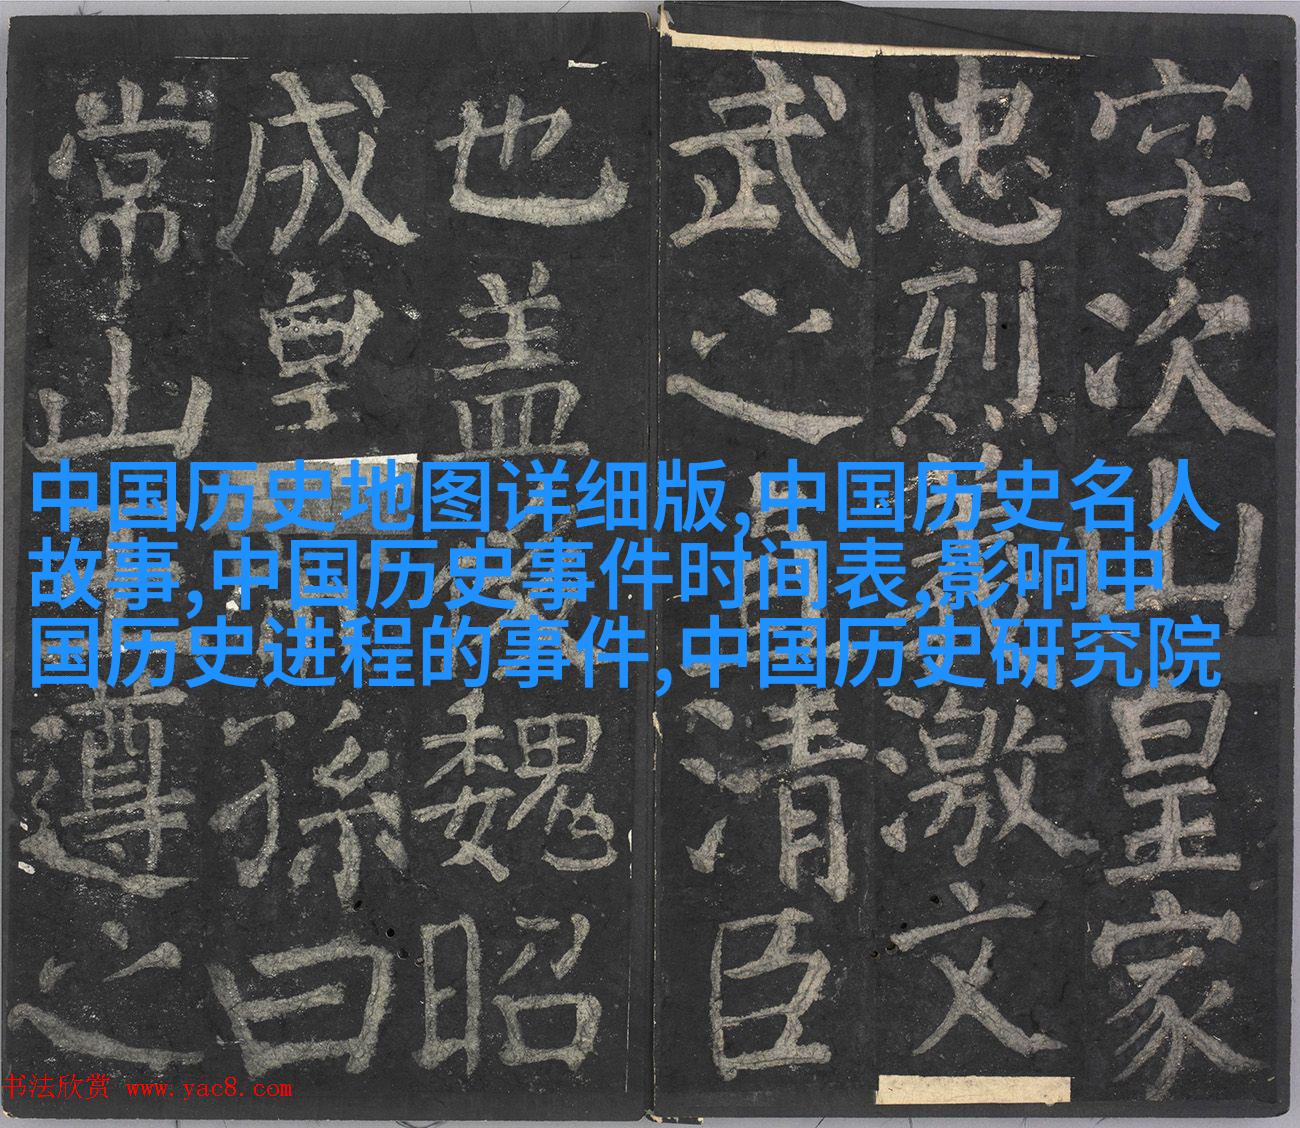 字次山皇家
忠烈義激文
武之清臣
也盖魏昭
成皇孫曰
常山遵之
中国历史地图详细版,中国历史名人
故事,中国历史事件时间表,影响中
国历史进程的事件,中国历史研究院
书法欣赏 www.yac8.com